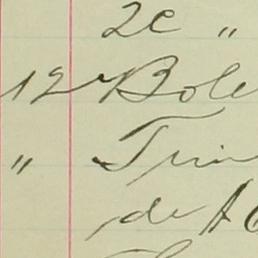 2c "
12 Bole
" Trin
de